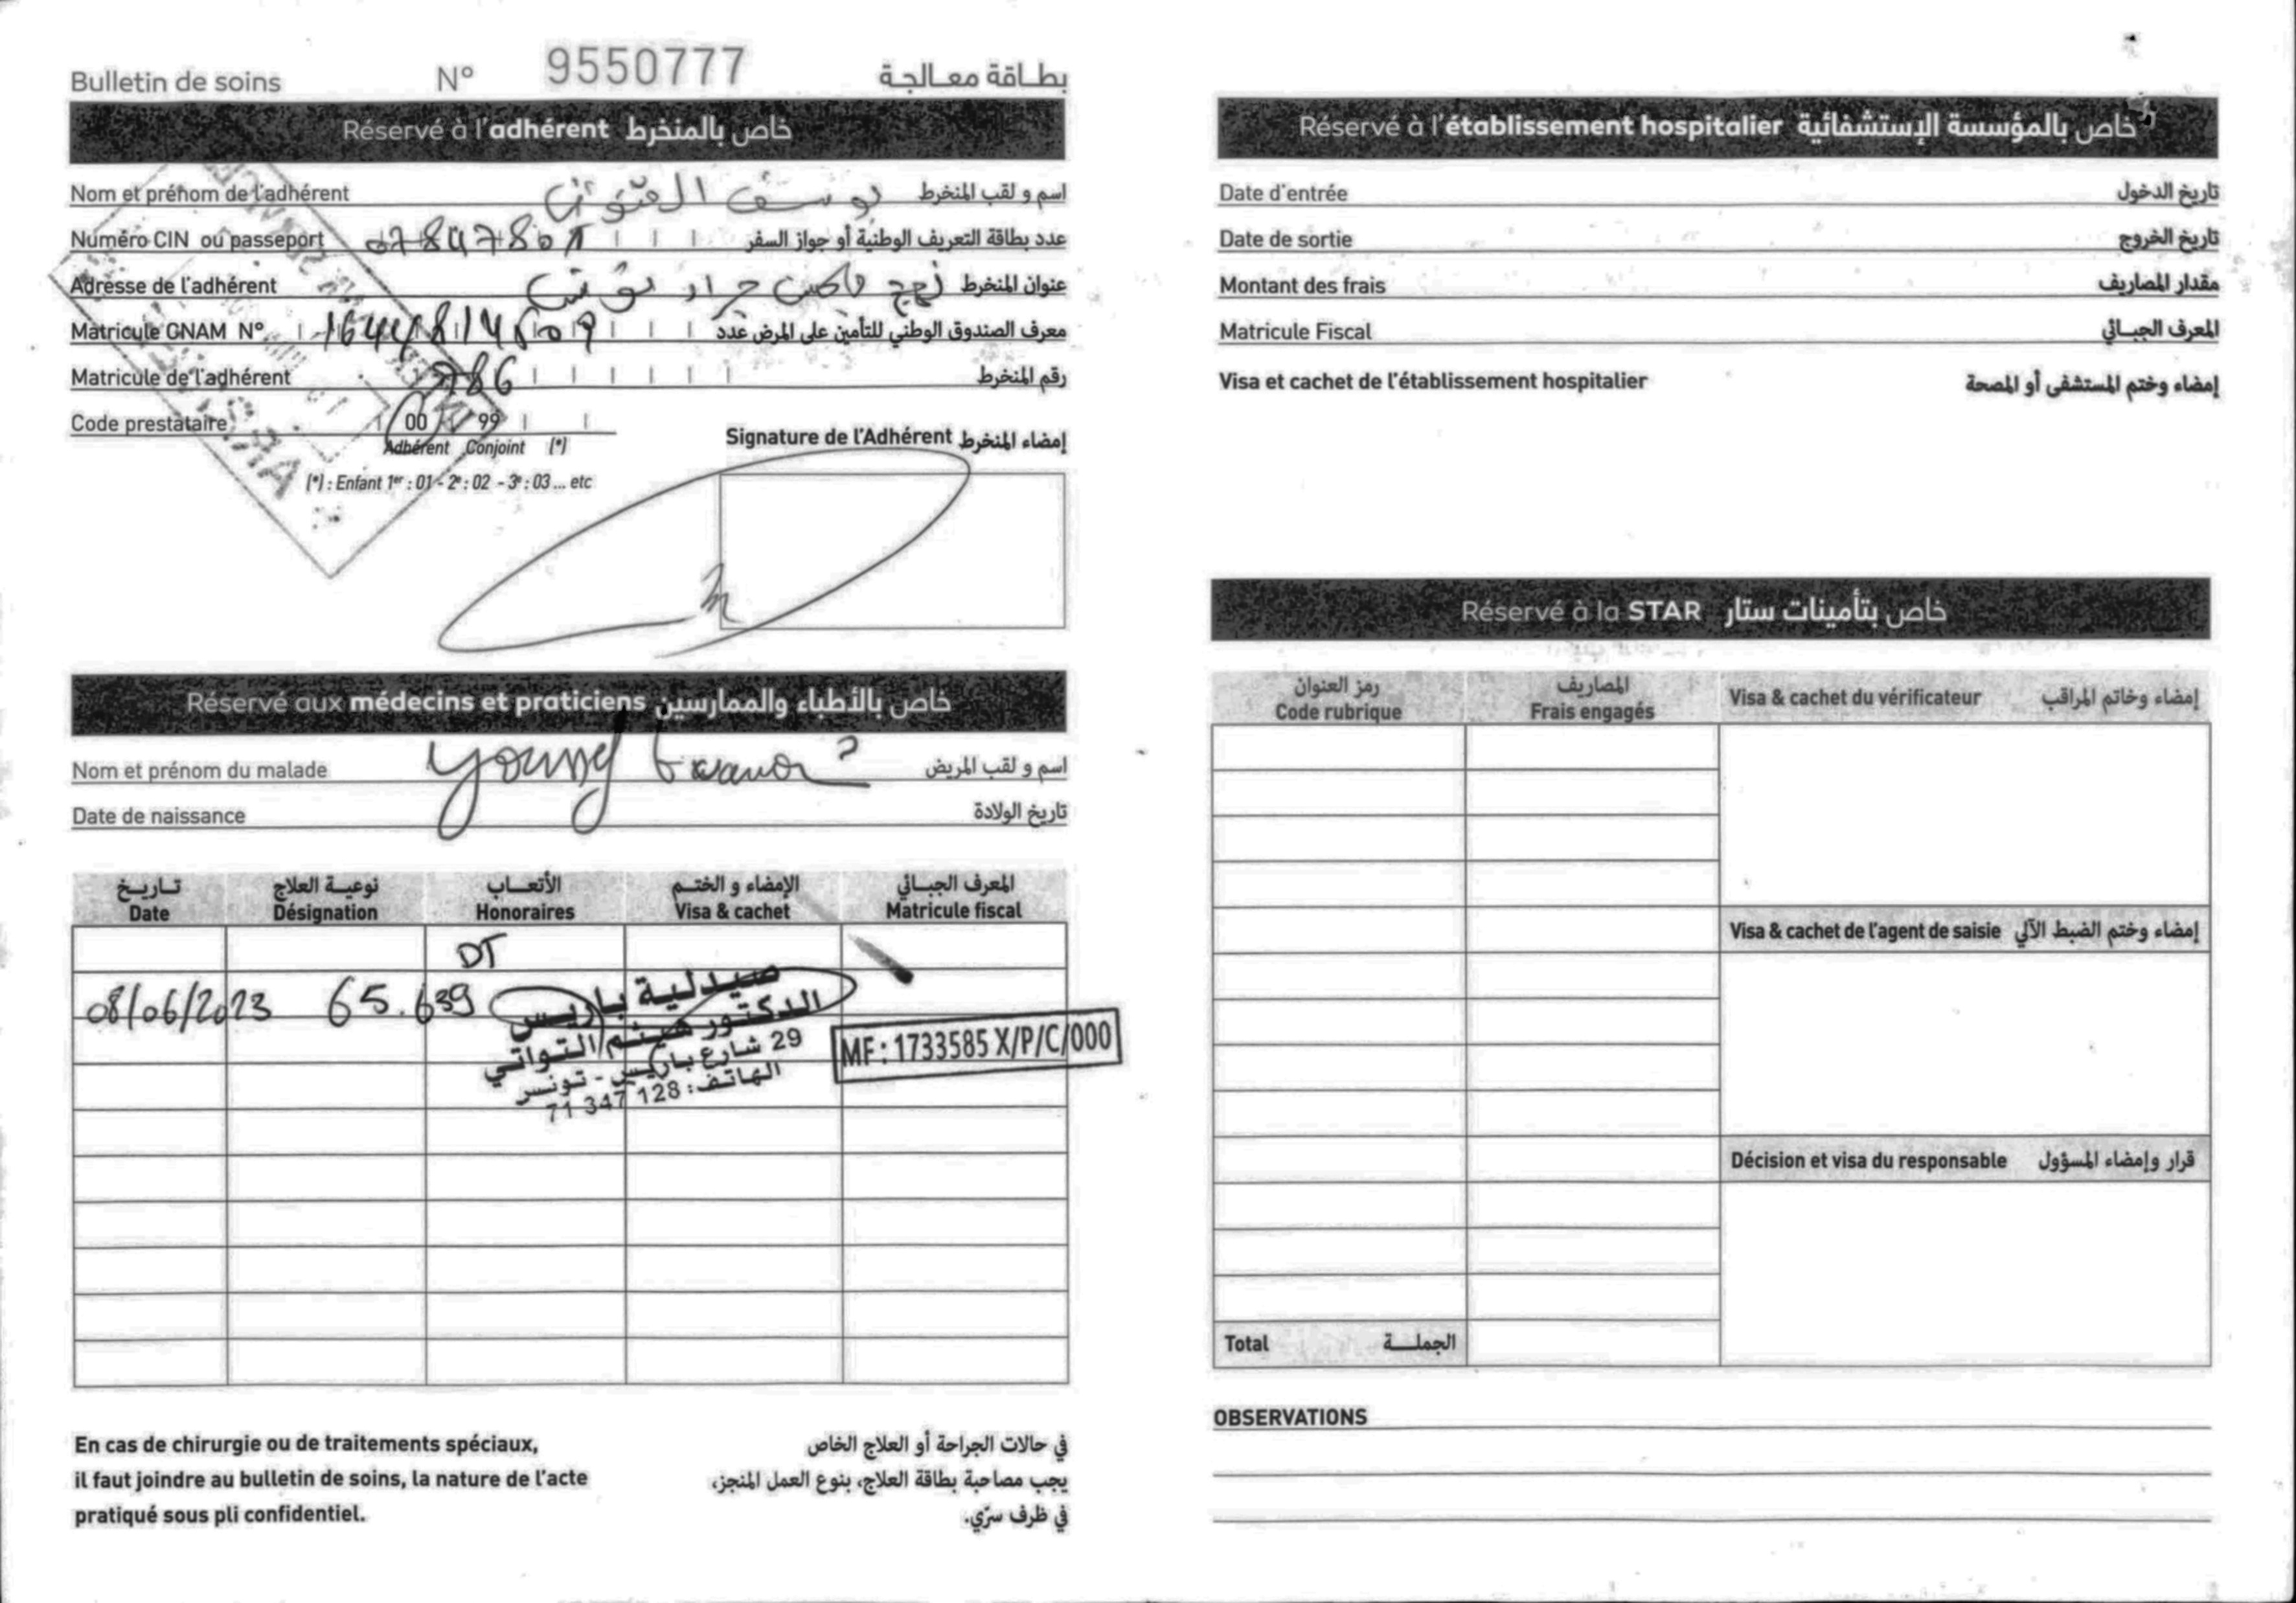 Bulletin de soins N° 9550777 بطاقة معالجة
Réservé à l'adhérent خاص بالمنخرط
Nom et prénom de l'adhérent يوسف اسم و لقب المنخرط
Numéro CIN ou passeport عدد بطاقة التعريف الوطنية أو جواز السفر
Adresse de l'adhérent نهج عنوان المنخرط
Matricule CNAM N° معرف الصندوق الوطني للتأمين على المرض عدد
Matricule de l'adhérent 786 رقم المنخرط
Code prestataire 00 99
Adhérent Conjoint (*)
(*) : Enfant 1er : 01 - 2e : 02 - 3e : 03 ... etc
Signature de l'Adhérent إمضاء المنخرط
Réservé aux médecins et praticiens خاص بالأطباء والممارسين
Nom et prénom du malade Youssef اسم و لقب المريض
Date de naissance تاريخ الولادة
تاريخ نوعية العلاج الأتعاب الإمضاء و الختم المعرف الجبائي
Date Désignation Honoraires Visa & cachet Matricule fiscal
DT
08/06/2023 65.639
صيدلية باريس
الدكتور هيثم التواتي
29 شارع باريس - تونس
الهاتف: 128 347 71
MF : 1733585 X/P/C/000
En cas de chirurgie ou de traitements spéciaux,
il faut joindre au bulletin de soins, la nature de l'acte
pratiqué sous pli confidentiel.
في حالات الجراحة أو العلاج الخاص
يجب مصاحبة بطاقة العلاج، بنوع العمل المنجز،
في ظرف سرّي.
Réservé à l'établissement hospitalier خاص بالمؤسسة الإستشفائية
Date d'entrée تاريخ الدخول
Date de sortie تاريخ الخروج
Montant des frais مقدار المصاريف
Matricule Fiscal المعرف الجبائي
Visa et cachet de l'établissement hospitalier إمضاء وختم المستشفى أو المصحة
Réservé à la STAR خاص بتأمينات ستار
رمز العنوان المصاريف
Code rubrique Frais engagés
Visa & cachet du vérificateur إمضاء وخاتم المراقب
Visa & cachet de l'agent de saisie إمضاء وختم الضبط الآلي
Décision et visa du responsable قرار وإمضاء المسؤول
Total الجملة
OBSERVATIONS